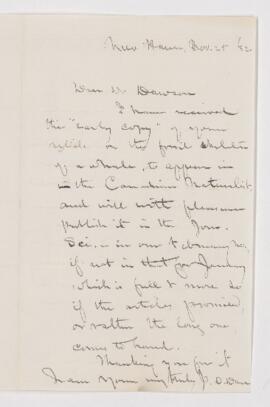 New Haven, Nov. 25 /82
Dear Dr Dawson
I have received
the "early copy" of your
article on the fossil skeleton
of a whale, to appear in
in the Canadian Naturalist,
and will with pleasure
publish it in the Jour.
Sci. - in our February No,
if not in that for January
which is full & more so
if the articles promised,
or rather the long one,
comes to hand.
Thanking you for it
I am yours very truly J. D. Dana